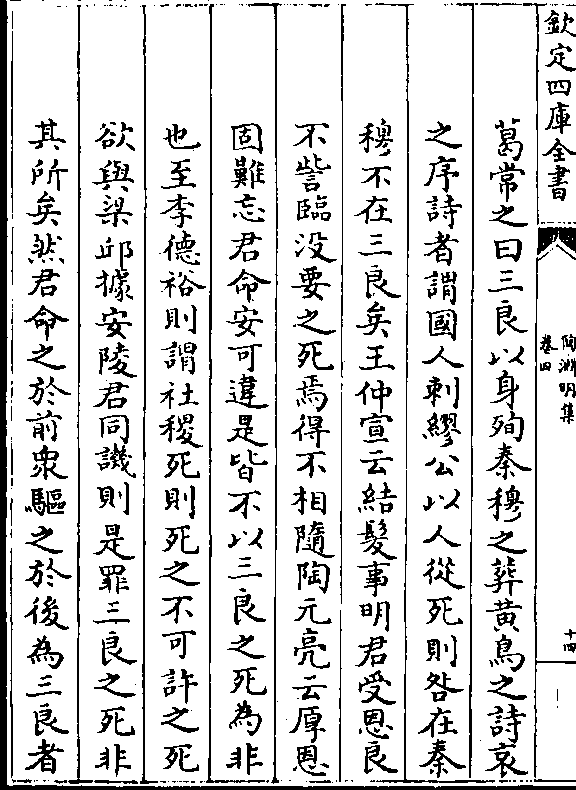 欽定四庫全書
陶淵明集
卷四
十四
葛常之曰三良以身殉秦穆之葬黄鳥之詩哀
之序詩者謂國人刺繆公以人從死則咎在秦
穆不在三良矣王仲宣云結髮事明君受恩良
不訾臨没要之死焉得不相隨陶元亮云厚恩
固難忘君命安可違是皆不以三良之死為非
也至李德裕則謂社稷死則死之不可許之死
欲與梁邱據安陵君同譏則是罪三良之死非
其所矣然君命之於前衆驅之於後為三良者